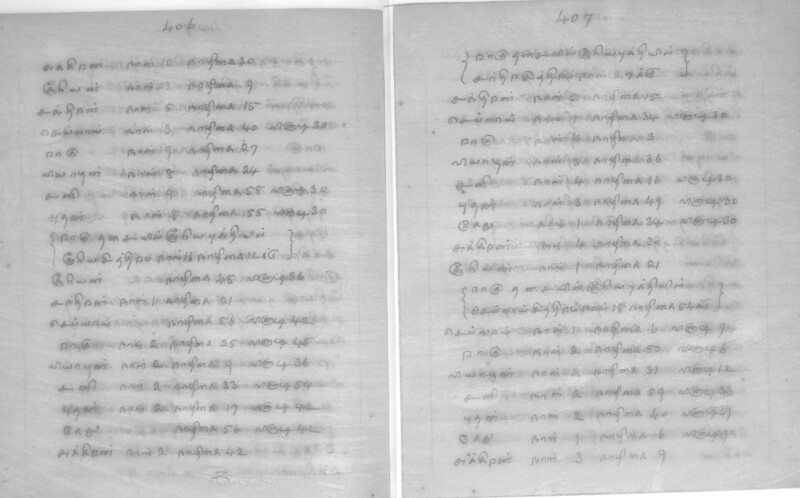 406
சுக்கிரன் நாள் 10 நாழிகை 30
சூரியன் நாள் 3 நாழிகை 9
சந்திரன் நாள் 5 நாழிகை 15
செவ்வாய் நாள் 3 நாழிகை 40 வினாடி 30
ராகு நாள் 9 நாழிகை 27
வியாழன் நாள் 8 நாழிகை 24
சனி நாள் 9 நாழிகை 58 வினாடி 30
புதன் நாள் 8 நாழிகை 55 வினாடி 30
ராகு தசையில் சூரியபுத்தியில்
சூரிய நாள் 16 நாழிகை 12
சூரியன் நாழிகை 45 வினாடி 36
சந்திரன் நாள் 1 நாழிகை 21
செவ்வாய் நாழிகை 56 வினாடி 42
ராகு நாள் 2 நாழிகை 25 வினாடி 45
வியாழன் நாள் 2 நாழிகை 9 வினாடி 36
சனி நாள் 2 நாழிகை 33 வினாடி 54
புதன் நாள் 2 நாழிகை 17 வினாடி 42
கேது நாழிகை 56 வினாடி 42
சுக்கிரன் நாள் 2 நாழிகை 42
407
ராகு தசையில் சூரியபுத்தியில்
நாள் 27
சந்திரன் நாள் 2 நாழிகை 15
செவ்வாய் நாள் 1 நாழிகை 34 வினாடி 30
ராகு நாள் 4 நாழிகை 3
வியாழன் நாள் 3 நாழிகை 36
சனி நாள் 4 நாழிகை 16 வினாடி 30
புதன் நாள் 3 நாழிகை 49 வினாடி 30
கேது நாள் 1 நாழிகை 34 வினாடி 30
சுக்கிரன் நாள் 4 நாழிகை 30
சூரியன் நாள் 1 நாழிகை 21
ராகு தசையில் சூரியபுத்தியில்
செவ்வாய் நாள் 18 நாழிகை 54
செவ்வாய் நாள் 1 நாழிகை 6 வினாடி 9
ராகு நாள் 2 நாழிகை 50 வினாடி 6
வியாழன் நாள் 2 நாழிகை 31 வினாடி 12
சனி நாள் 2 நாழிகை 59 வினாடி 33
புதன் நாள் 2 நாழிகை 40 வினாடி 39
கேது நாள் 1 நாழிகை 6 வினாடி 9
சுக்கிரன் நாள் 3 நாழிகை 9